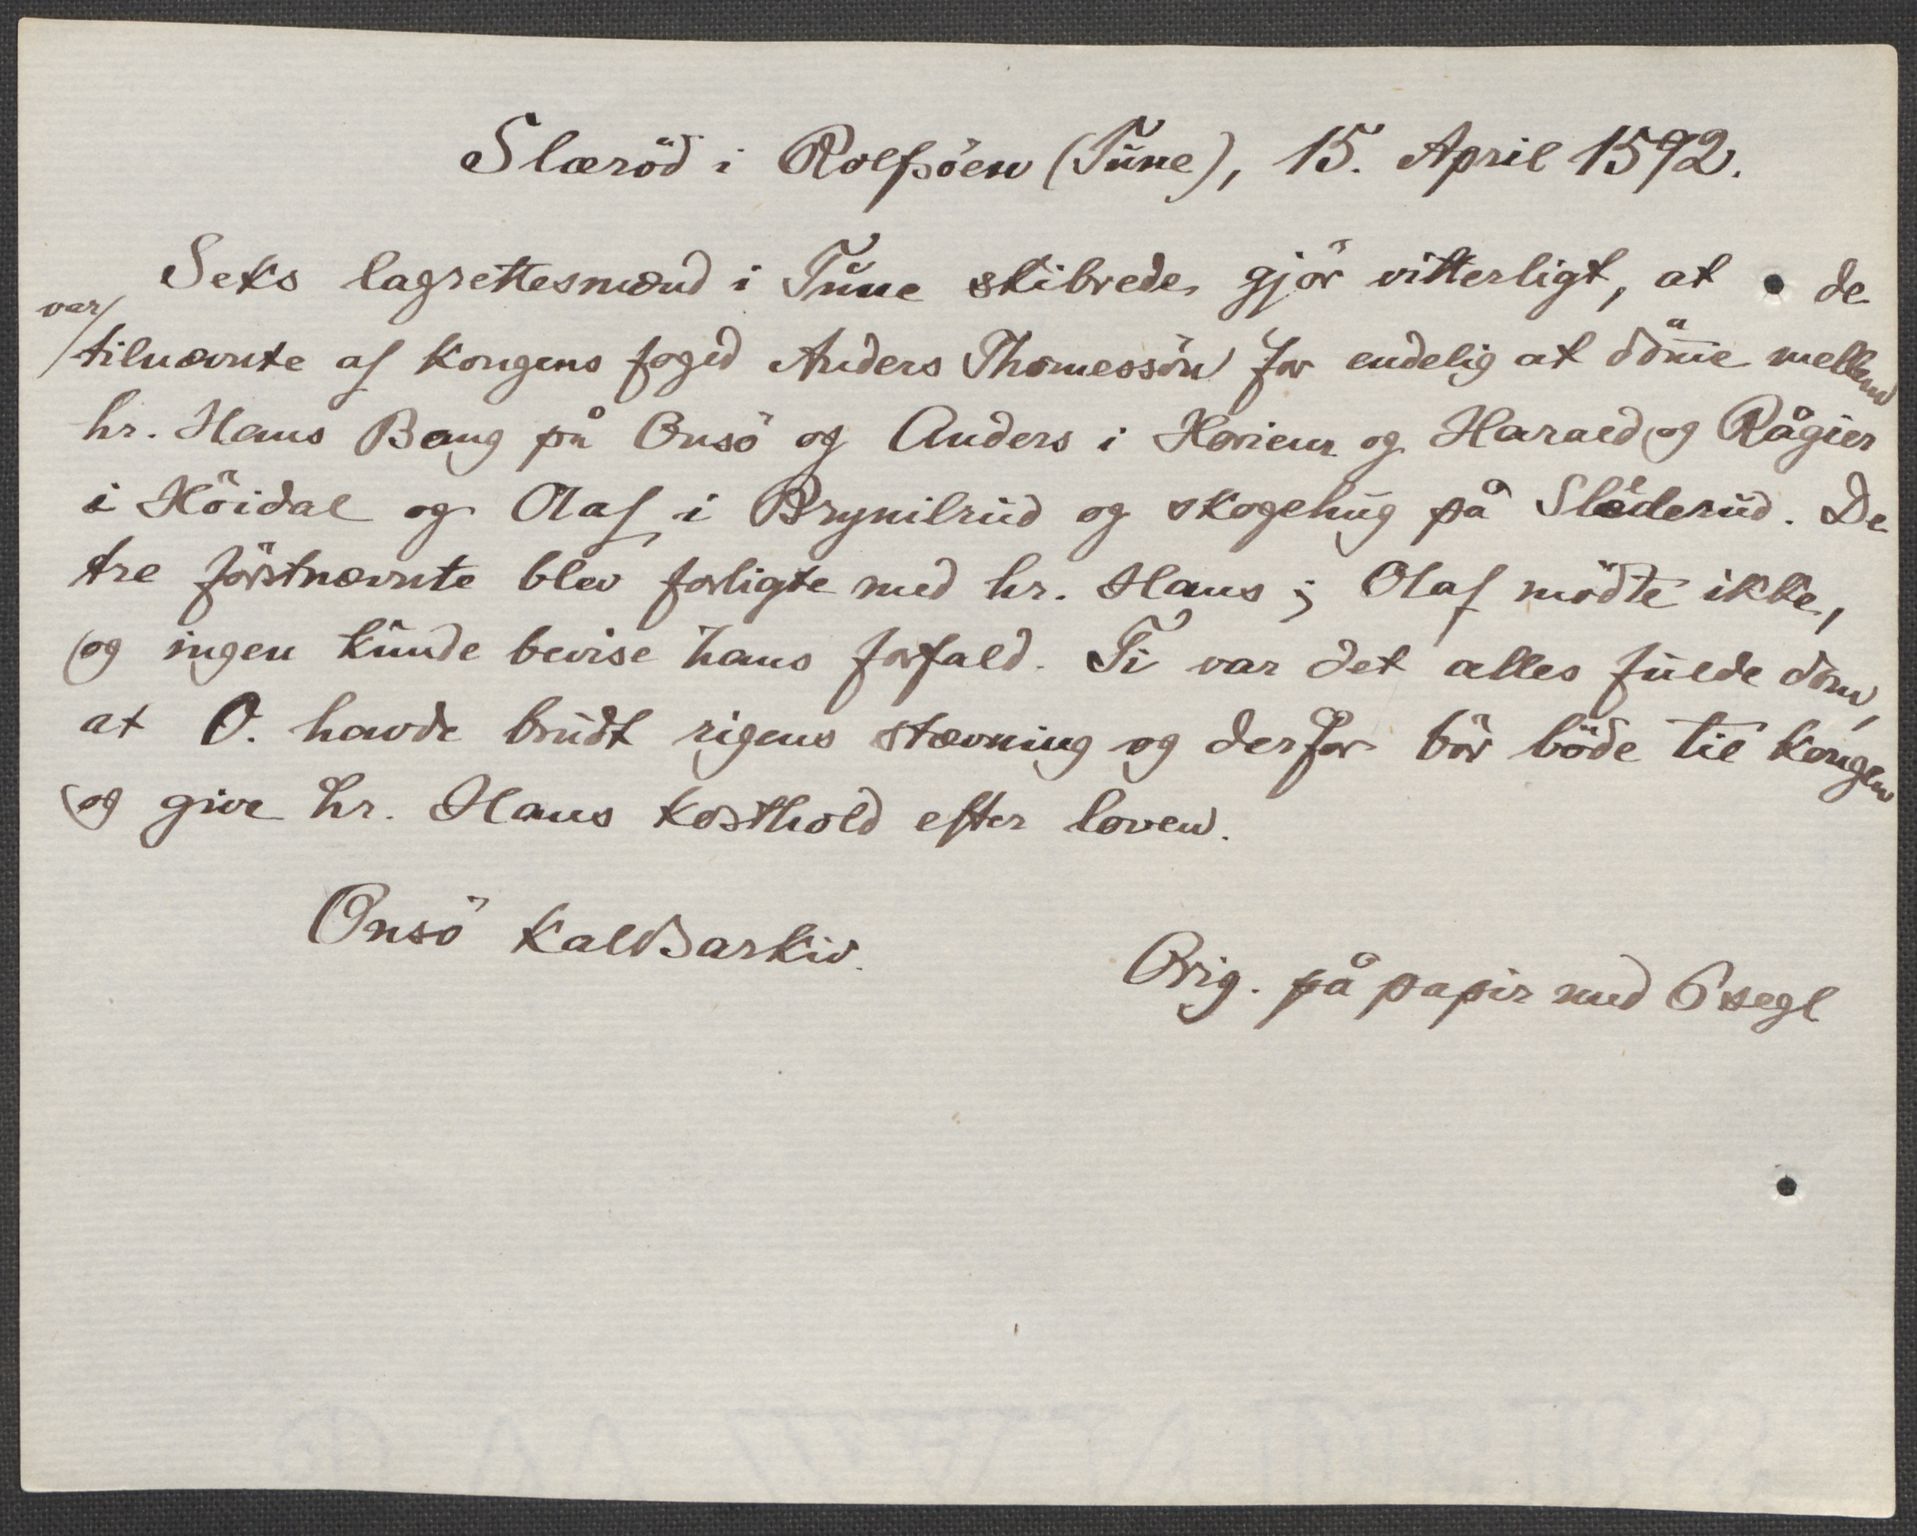 Slæröd i Rolfsöen (Tune), 15. April 1592.
Seks lagrettesmænd i Tune skibrede, gjör vitterligt, at de
var/
/tilnævnte af kongens foged Anders Thomessön for endelig at dömme mellem
hr. Hans Bang på Onsö og Anders i Horieur og Harald og Rågier
i Höidal og Olaf i Brynilrud og skogehug på Slæderud. De
tre förstnævnte blev forligte med hr. Hans; Olaf mödte ikke,
og ingen kunde bevise hans forfald. Ti var det alles fulde dom,
at O. havde brudt rigens stævning og derfor bör böde til kongen
og give hr. Hans kosthold efter loven.
Onsö kaldsarkiv.
Orig. på papir med 6 segl